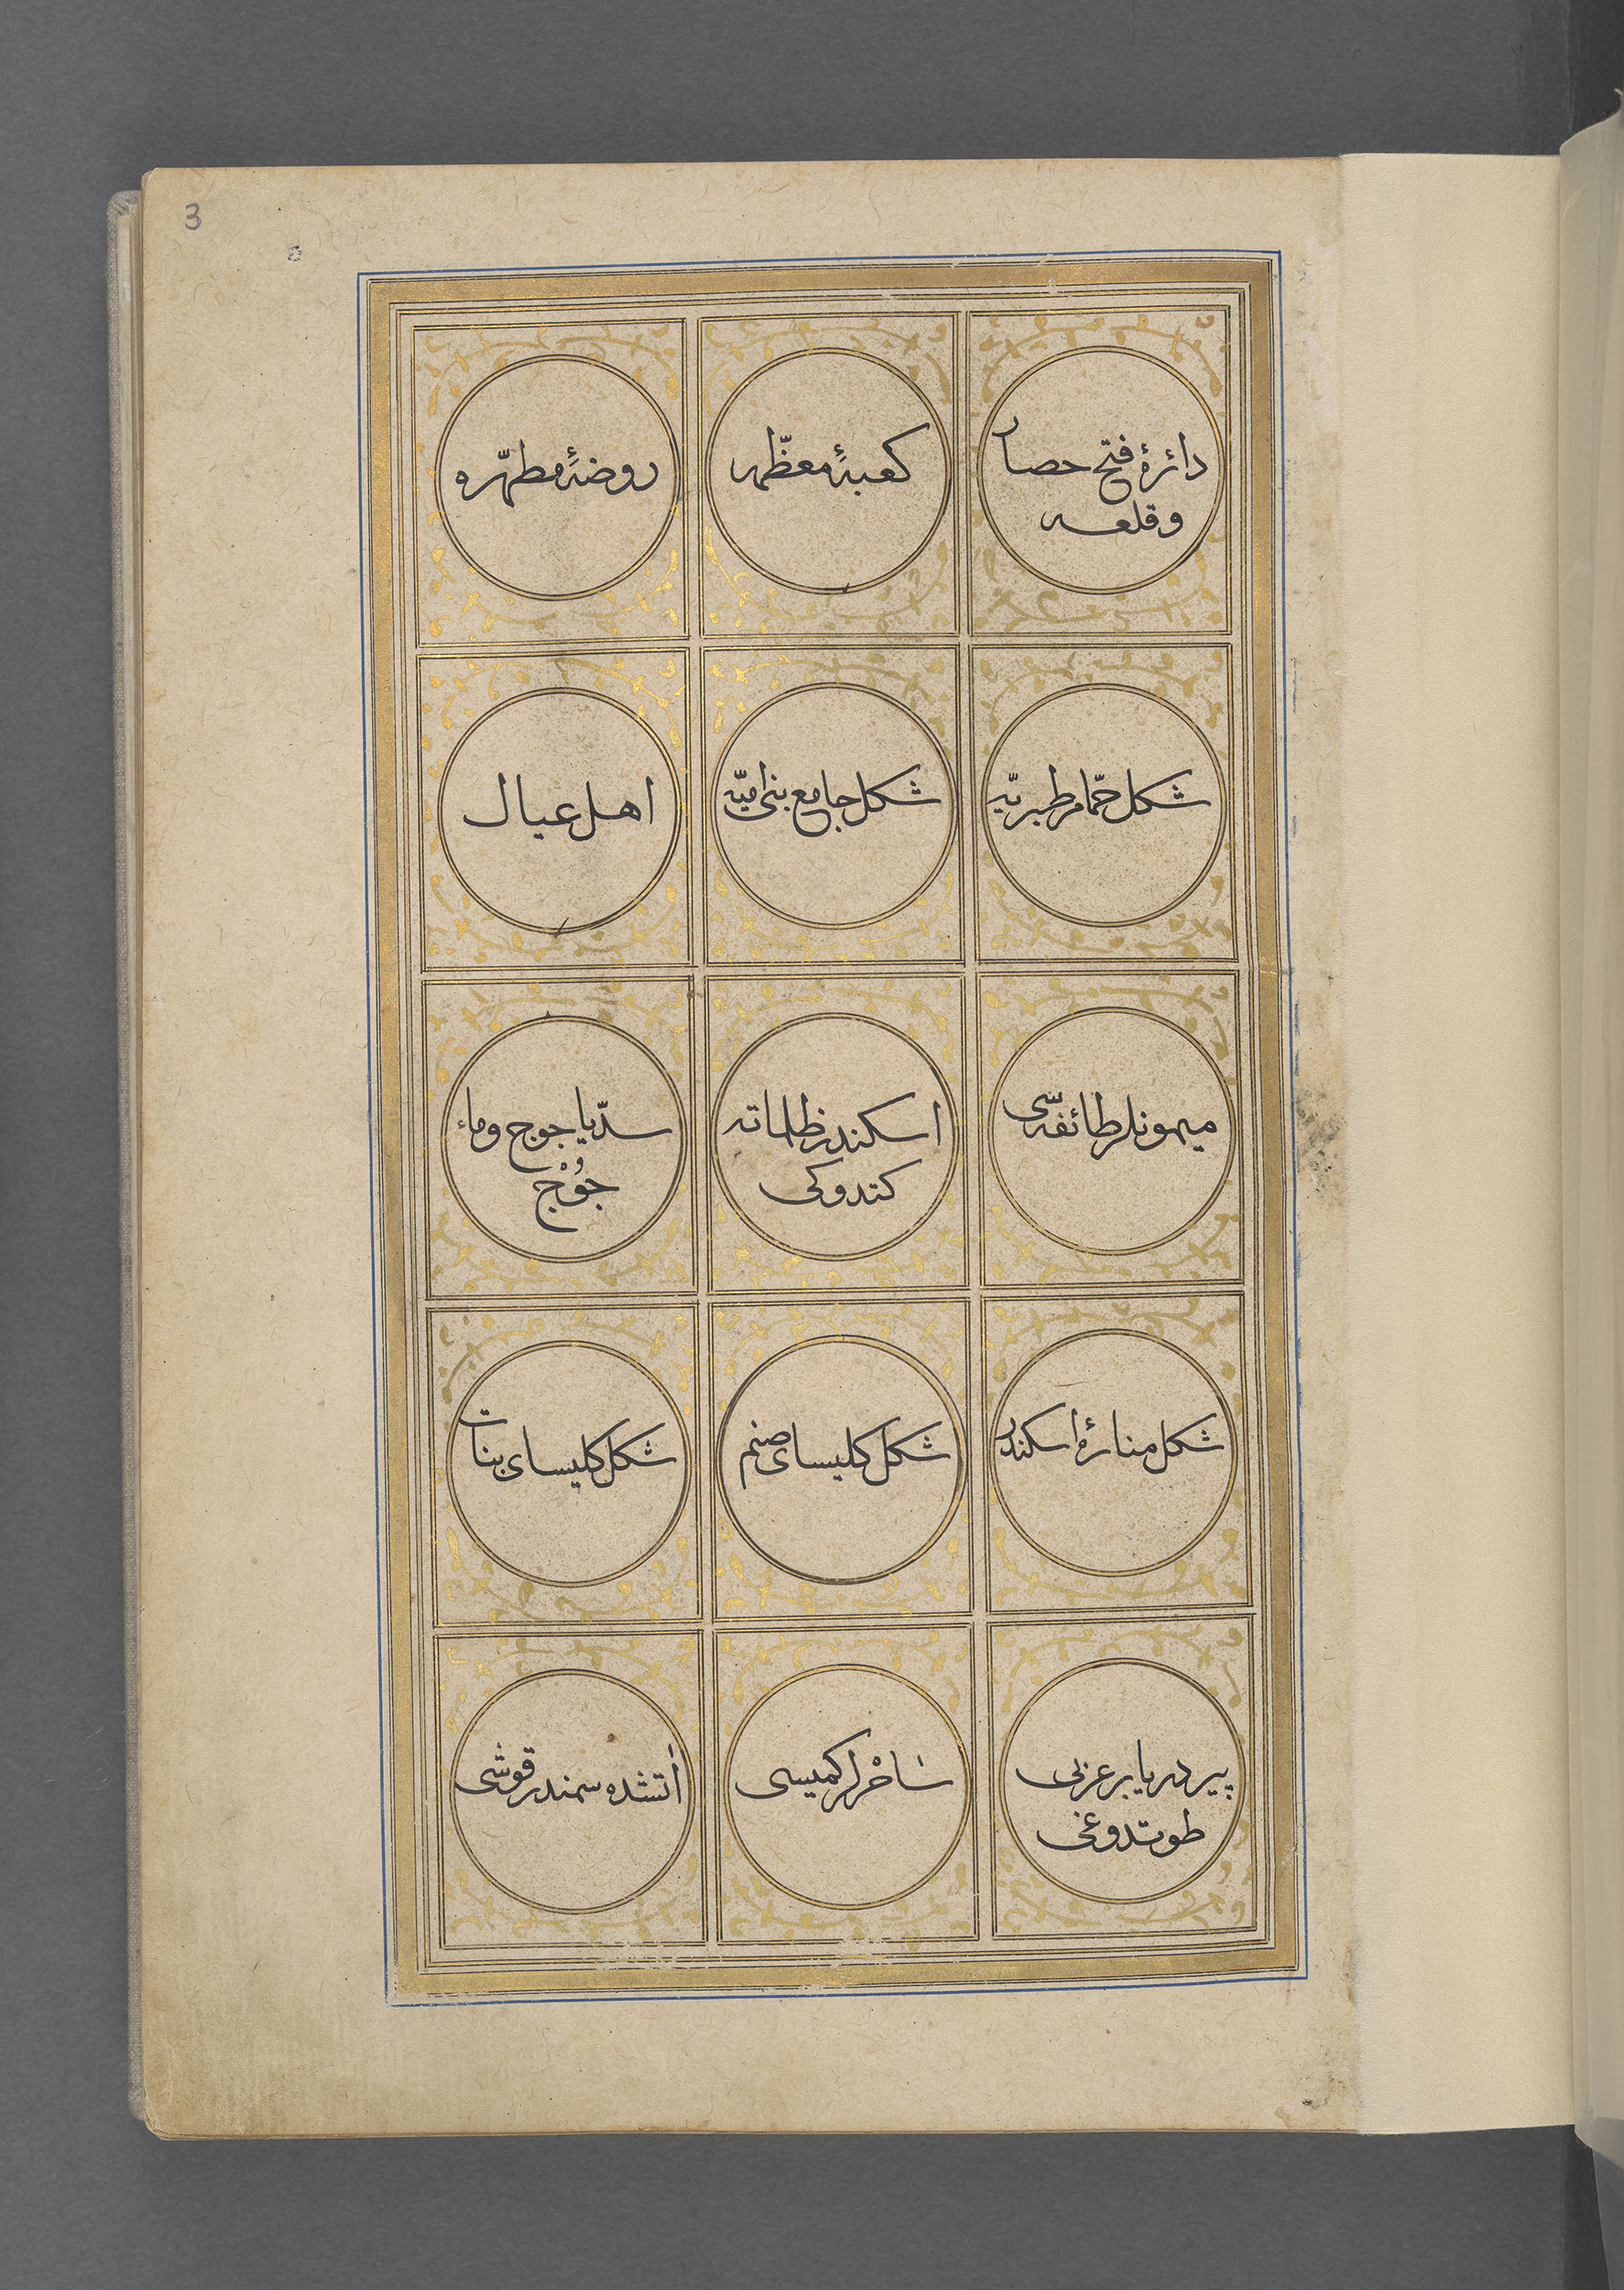 3
دائرهٔ فتح حصار
وقلعه
كعبهٔ معظّمه
روضهٔ مطهّره
شكل حمّام طبریّه
شكل جامع بنی امیّه
اهل عیال
میمونلر طائفه‌سی
اسكندر ظلماته
كتدوكی
سدّ یاجوج وماء
جُوْج
شكل منارهٔ اسكندر
شكل كلیسای صنم
شكل كلیسای بنات
پیر دریا بر عزبی
طوتدوغی
سَاحْرلر كمیسی
أتشده سمندر قوشی